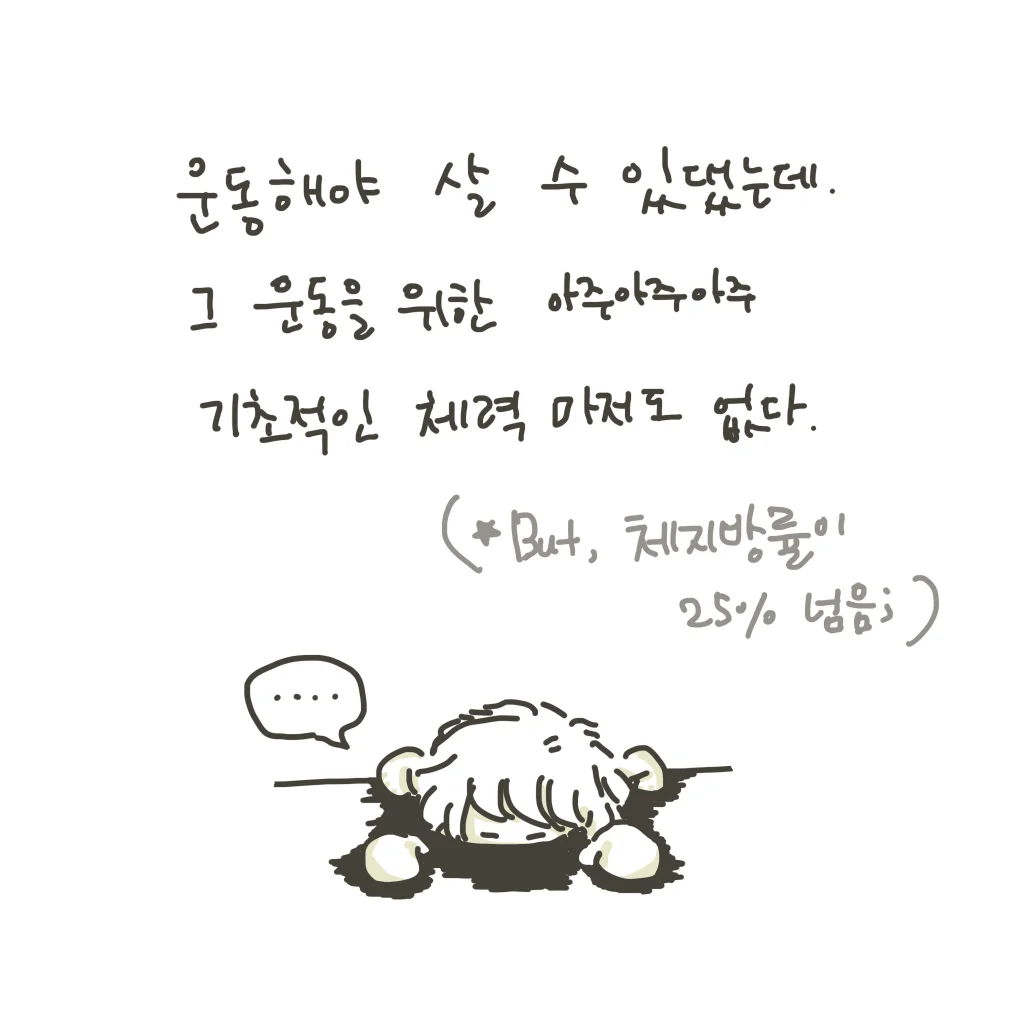 운동해야 살 수 있댔는데.
그 운동을 위한 아주아주아주
기초적인 체력 마저도 없다.
(*But, 체지방률이
25% 넘음;)
....